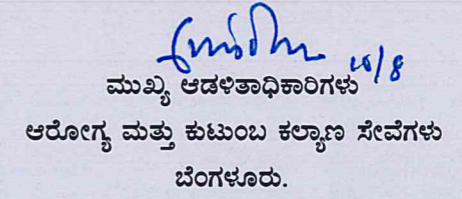 ಮುಖ್ಯ ಆಡಳಿತಾಧಿಕಾರಿಗಳು
ಆರೋಗ್ಯ ಮತ್ತು ಕುಟುಂಬ ಕಲ್ಯಾಣ ಸೇವೆಗಳು
ಬೆಂಗಳೂರು.